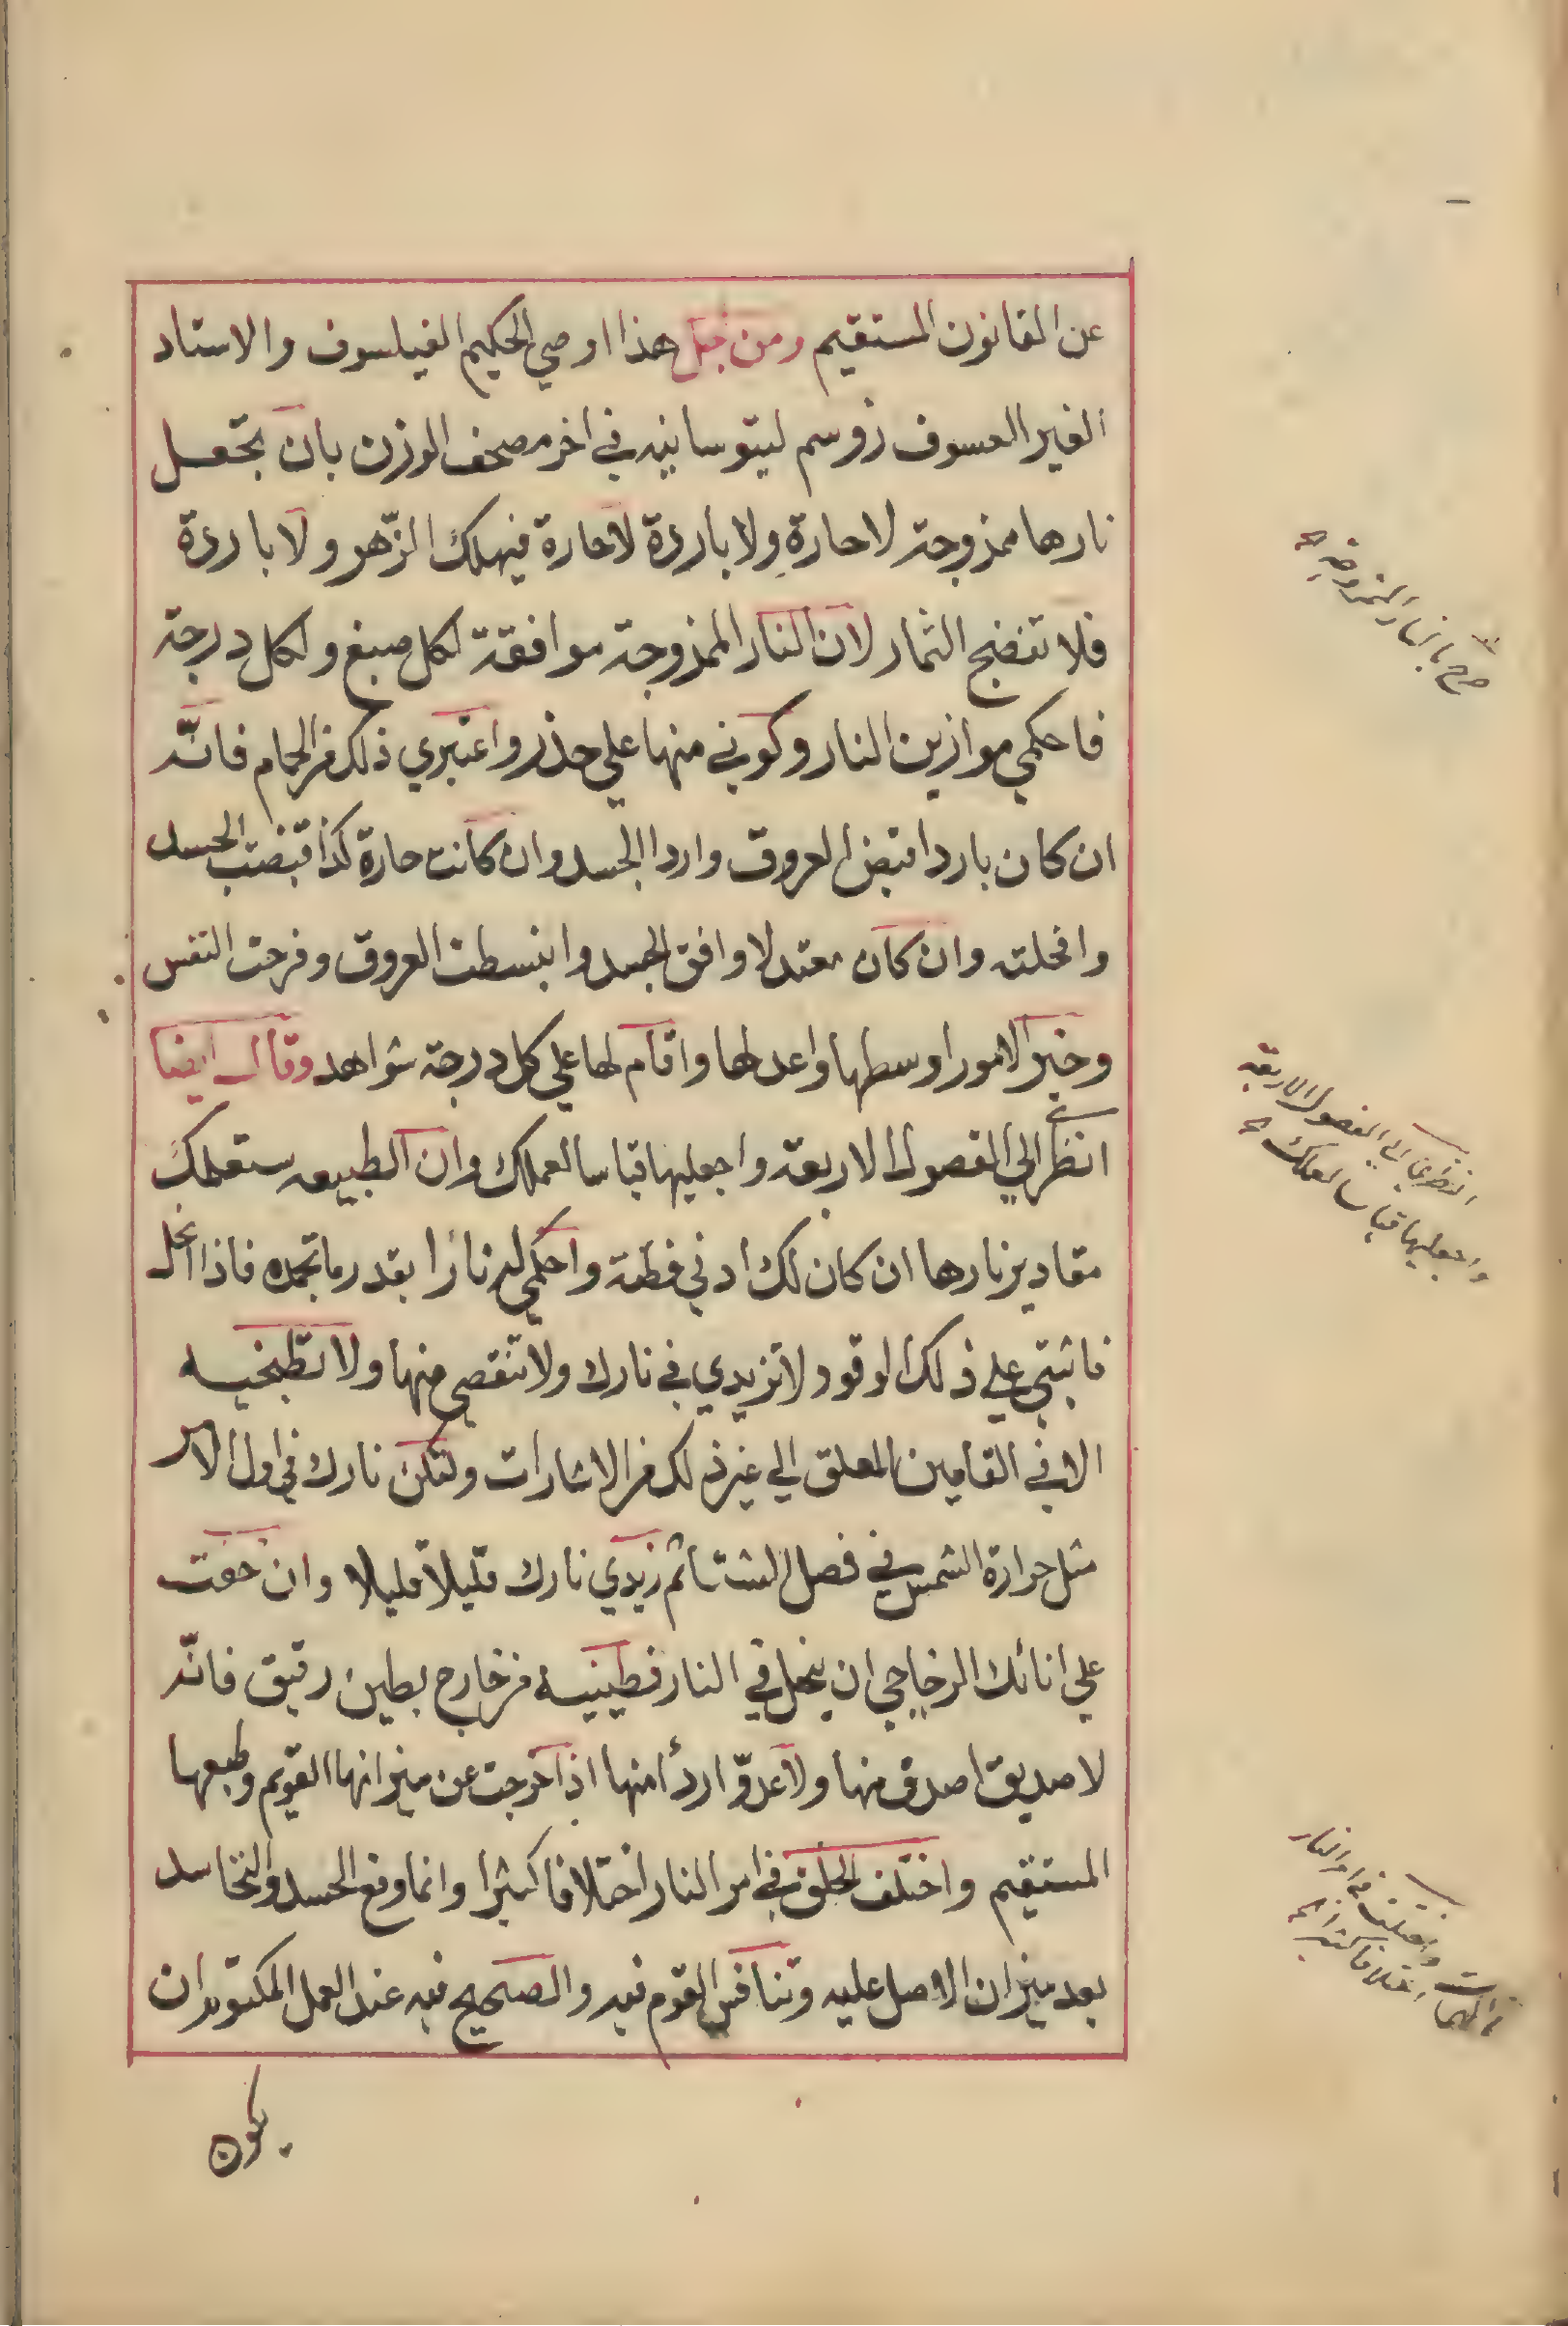 عن القانون المستقيم ومن اجل هذا اوصي الحكيم الفيلسوف والاستاد
الغير العسوف زوسم لتيوسانيه في اخر مصحف الوزن بان تجعل
نارها ممزوجة لا حارة ولا باردة لا حارة فيهلك الزّهر ولا باردة
فلا تنضج الثمار لان النار الممزوجة موافقة لكل صبغ ولكل درجة
فاحكمي موازين النار وكوني منها علي حذر واعتبري ذلك من الحمام فانّه
ان كان باردا قبض العروق واردا الجسد وان كانت حارة كذا قبضت الجسد
وانحلته وان كان معتدلا وافق الجسد وانبسطت العروق وفرحت النفس
وخير الامور اوسطها واعدلها واقام لها علي كل درجة شواهد وقال ايضا
انظري الي الفصول الاربعة واجعليها قياسا لعملك وان الطبيعه ستعلمك
مقادير نارها ان كان لك ادني فطنة واحكمي له نارا بقدر ما تجمده فاذا انحل
فاثبتي علي ذلك الوقود لا تزيدي في نارك ولا تنقصي منها ولا تطبخيه
الا في القامين المعلق الي غير ذلك من الاشارات ولتكن نارك في اول الامر
مثل حرارة الشمس في فصل الشتا ثم زيدي نارك قليلا قليلا وان خفت
علي انائك الزجاجي ان ينحل في النار فطينيه من خارج بطين رقيق فانّه
لا صديق اصدق منها ولا عدوّ اردأ منها اذا خرجت عن ميزانها القويم وطبعها
المستقيم واختلف الخلق في امر النار اختلافا كثيرا وانما وقع الحسد والتحاسد
بعد ميزان الاصل عليه وتنافس القوم فيه والصحيح فيه عند العمل المكتوم ان
يكون
صرح بالنار الممزوجة
انظري الي الفصول الاربعة
واجعليها قياسا لعملك
واختلفت في امر النار
اختلافا كثيرا